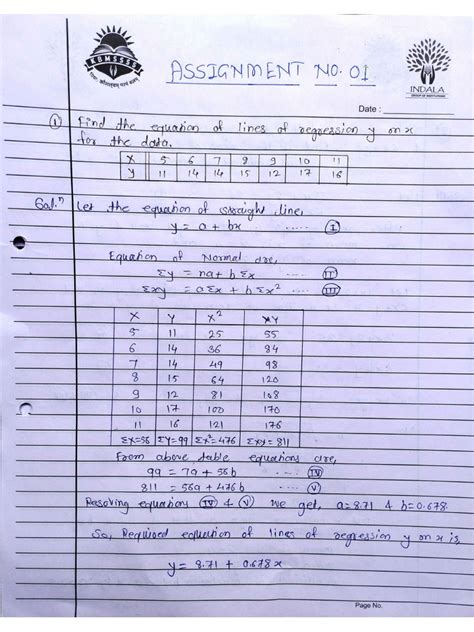 KBMSSSS
ASSIGNMENT NO. 01
INDALA
Date :
① Find the equation of lines of regression y on x
for the data.
X 5 6 7 8 9 10 11
Y 11 14 14 15 12 17 16
Sol.ⁿ Let the equation of straight line,
y = a + bx ..... Ⓘ
Equation of Normal are,
Σy = na + bΣx ..... Ⓘⓘ
Σxy = aΣx + bΣx² .... Ⓘⓘⓘ
X Y X² XY
5 11 25 55
6 14 36 84
7 14 49 98
8 15 64 120
9 12 81 108
10 17 100 170
11 16 121 176
ΣX=56 ΣY=99 ΣX²=476 ΣXY=811
From above table equations are,
99 = 7a + 56b .... (IV)
811 = 56a + 476b .... (V)
Resolving equations (IV) & (V) we get, a=8.71 & b=0.678.
So, Required equation of lines of regression y on x is,
y = 8.71 + 0.678x
Page No.